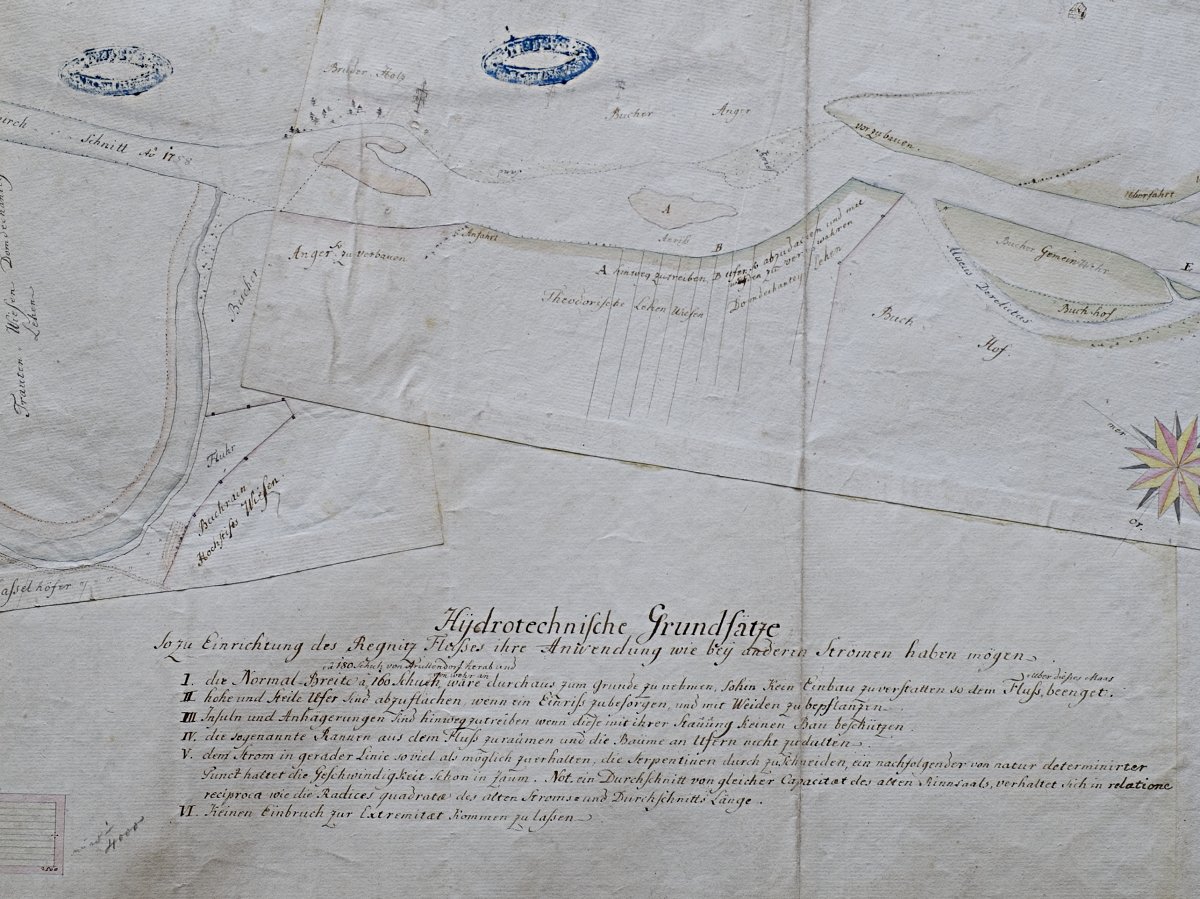 Bruder Holz
Bucher Anger
durch Schnitt Aō 1758
vorzubauen.
Uberfahrt
Anger zu verbauen
Anfahrt
A
Bucher
B
A hinweg zu treiben, B Ufer so abzudachen und mit
weyden zu verwahren
Theodorische Lehen Wiesen
Domdechantey Lehen
Bucher Gemein Wehr
E
Alveus Derelictus
Buch hof
Buch
Hof.
Trauten Wiesen Domdechantey
Lehen
Fluhr
Buchrain
Hochstifts Wiesen
mer
Or.
asselhöfer
Hÿdrotechnische Grundsätze
So zu Einrichtung des Regnitz Flosses ihre Anwendung wie bey anderen Stromen haben mögen.
à 180 Schuh von Trullendorf herab und
über dieses Maas
I. die Normal-Breite à 160 Schuch, wäre durchaus zum Grunde zu nehmen, sohin Keen Einbau zu verstatten so dem Fluss, beenget.
II. hohe und steile Ufer sind abzuflachen, wenn ein Einriss zu besorgen, und mit Weiden zu bepflanzen.
III. Insuln und Anhägerungen sind hinweg zutreiben wenn diese mit ihrer Stauung Keinen Bau beschützen.
IV. die sogenannte Rannen aus dem Fluss zuraumen und die Baume an Ufern nicht zudulten
V. dem Strom in gerader Linie so viel als möglich zuerhalten, die Serpentinen durch zuschneiden, ein nachfolgender von natur determinirter
Punct haltet die Geschwindigkeit schon in Zaum. Not. ein Durchschnitt von gleicher Capacitæt des alten Rinnsaals, verhaltet sich in relatione
reciproca wie die Radices quadratæ des alten Stroms und Durchschnitts Länge.
VI. Keinen Einbruch zur Extremitæt Kommen zu lassen
4000